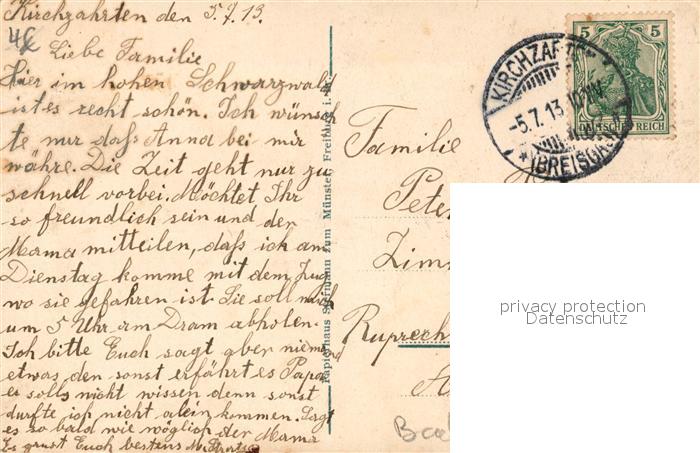 Kirchzahrten den 5.7.13.
Liebe Familie
Hier im hohen Schwarzwald
ist es recht schön. Ich wünsch
te nur daß Anna bei mir
währe. Die Zeit geht nur zu
schnell vorbei. Möchtet Ihr
so freundlich sein und der
Mama mitteilen, daß ich am
Dienstag komme mit dem Zug
wo sie gefahren ist. Sie soll mich
um 5 Uhr am Dram abholen.
Ich bitte Euch sagt aber niemand
etwas den sonst erfährt es Papa
er solls nicht wissen denn sonst
durfte ich nicht alein kommen. Sagt
es so bald wie wöglich der Mama
Es grust Euch bestens
Papierhaus zum Münster, Freiburg i.
KIRCHZARTEN
-5.7.13
(BREISGAU)
5 5
DEUTSCHES REICH
Familie
Peter
Zim
Ruprech
Bad
privacy protection
Datenschutz